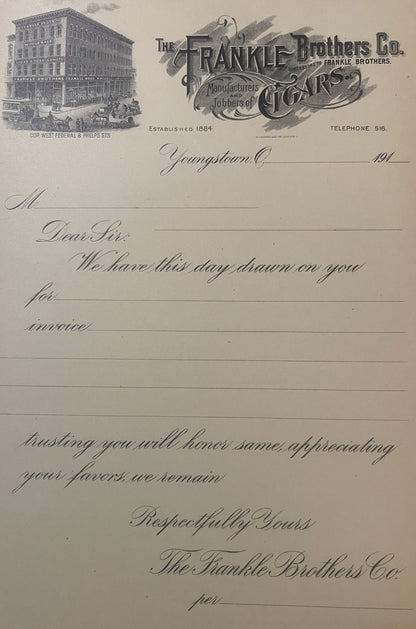 THE FRANKLE Brothers Co.
FRANKLE BROTHERS.
Manufacturers
AND
Jobbers of
CIGARS.
COR. WEST FEDERAL & PHELPS STS
ESTABLISHED 1884
TELEPHONE 516.
Youngstown, O 191
M
Dear Sir:
We have this day drawn on you
for
invoice
trusting you will honor same, appreciating
your favors, we remain
Respectfully Yours
The Frankle Brothers Co.
per